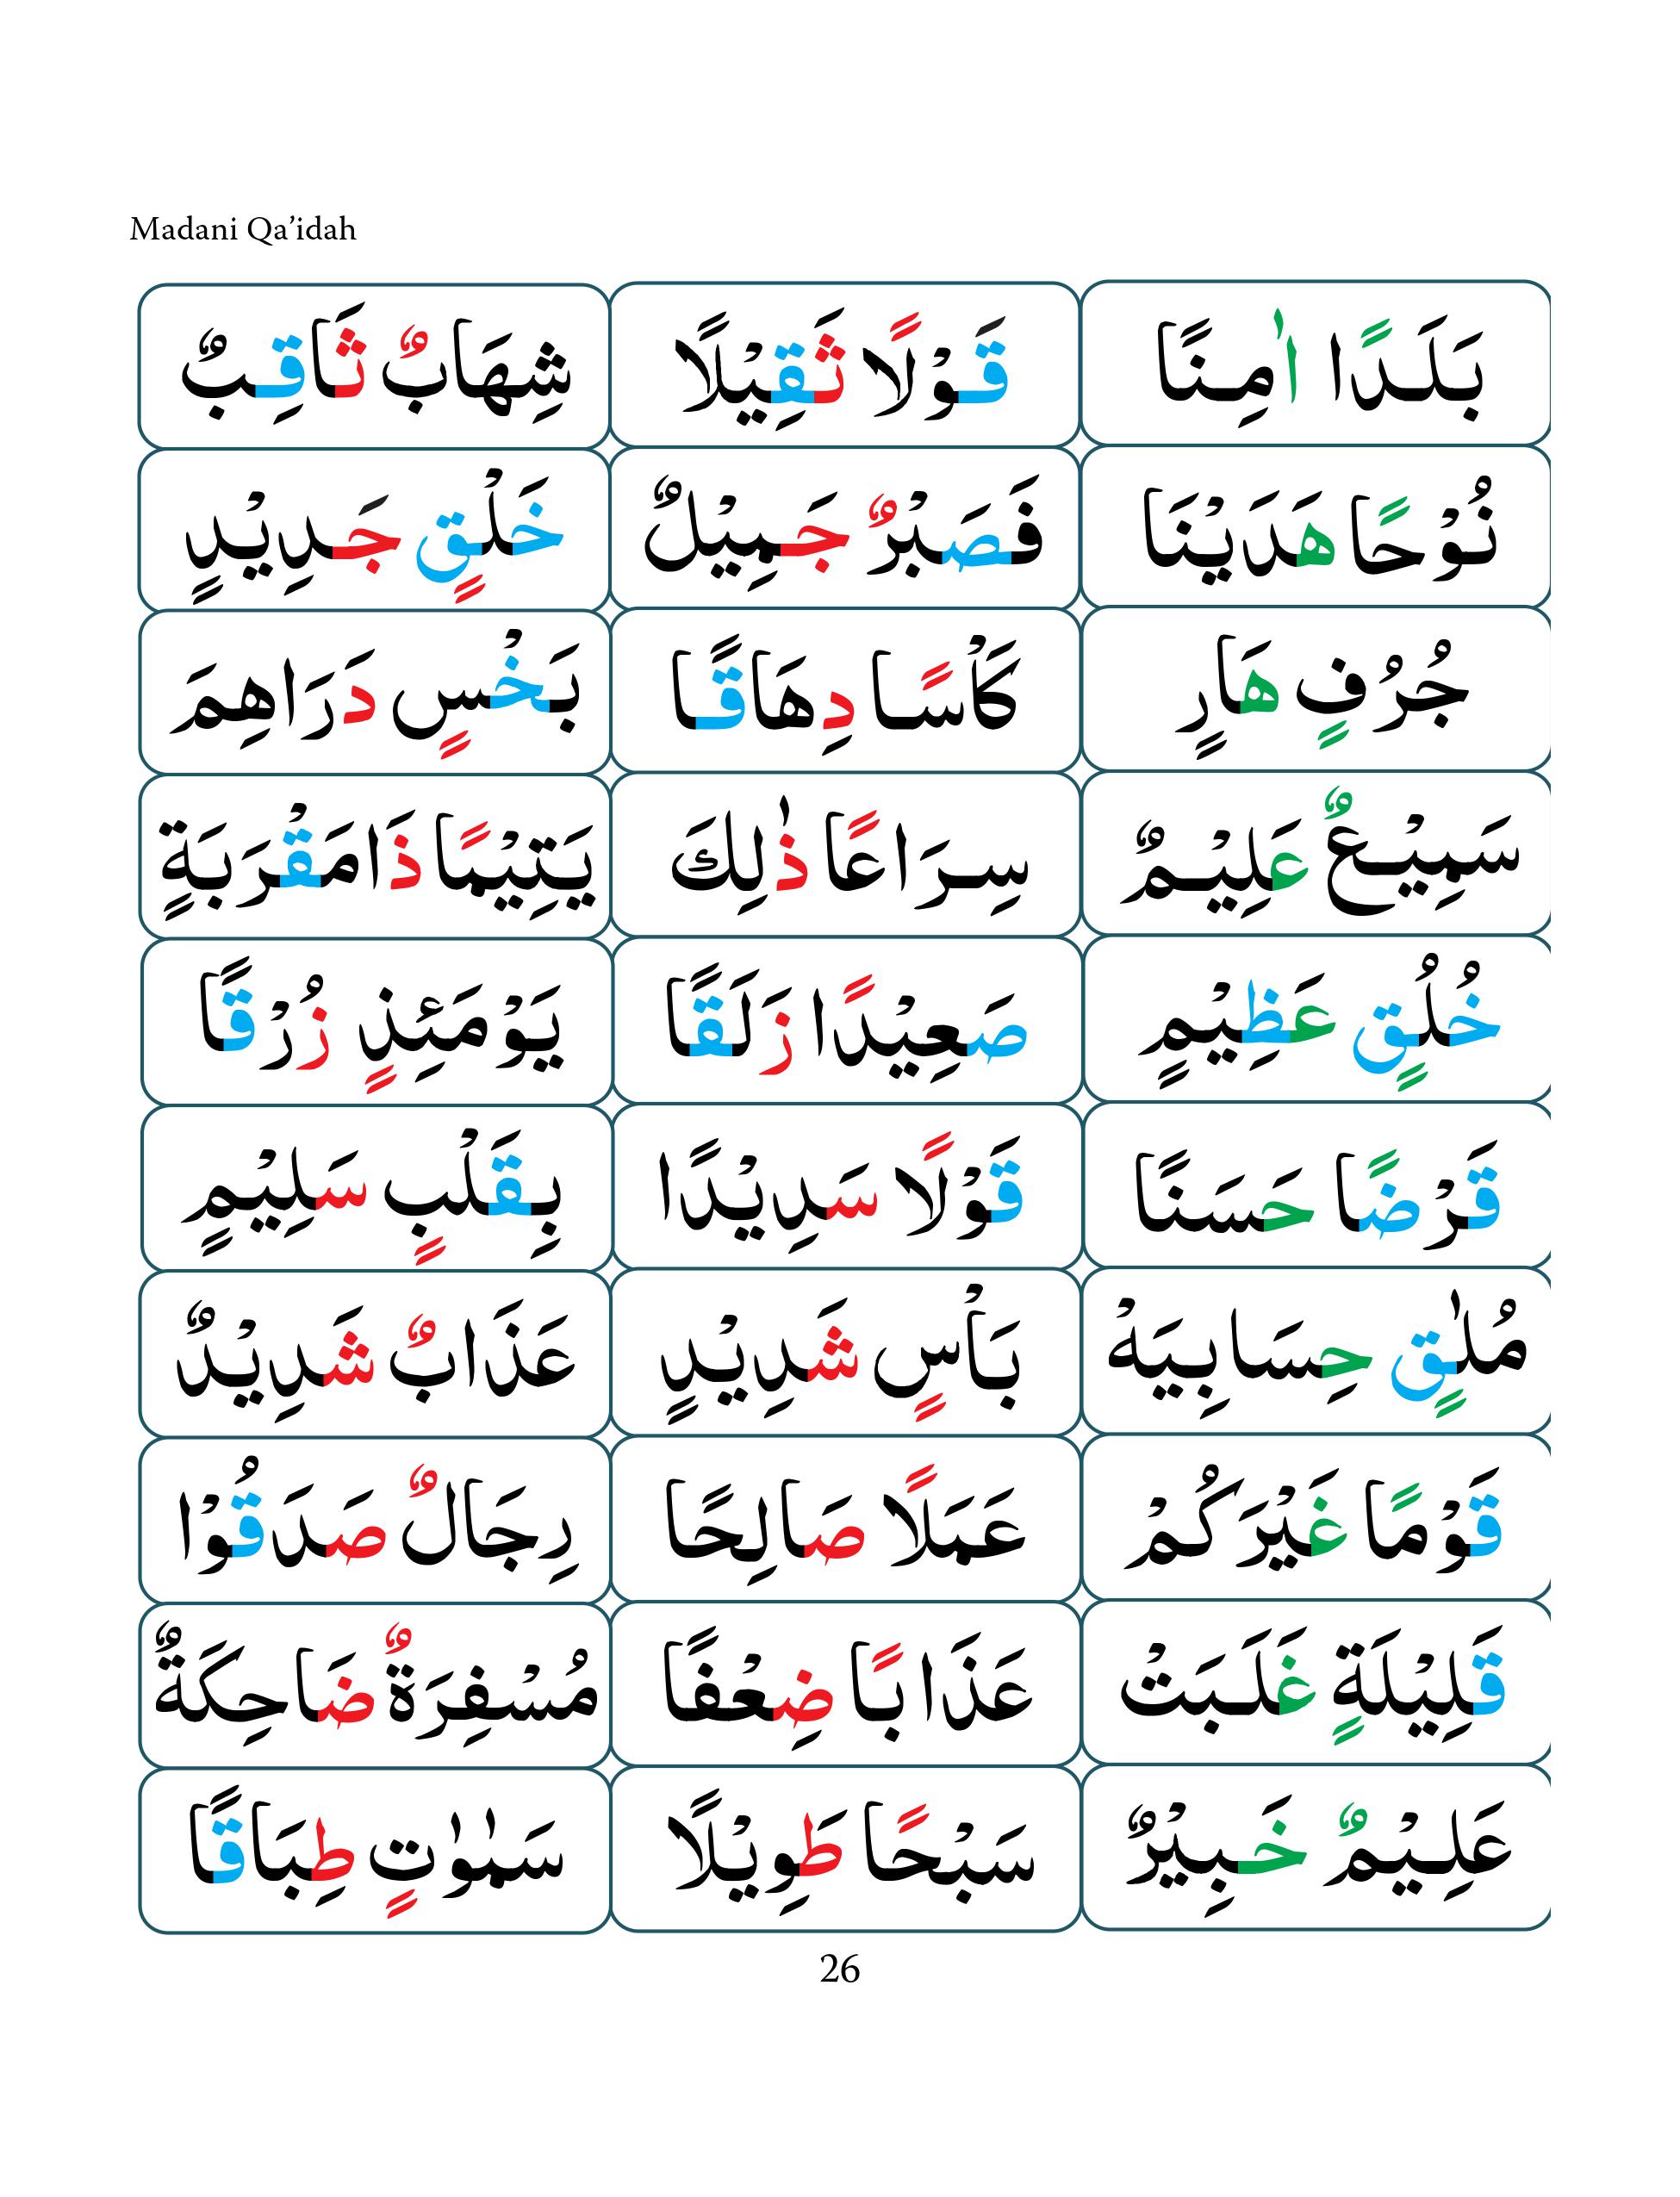 Madani Qa’idah
بَلَدًا اٰمِنًا قَوْلًا ثَقِيْلًا شِهَابٌ ثَاقِبٌ
نُوْحًا هَدَيْنَا فَصَبْرٌ جَمِيْلٌ خَلْقٍ جَدِيْدٍ
جُرُفٍ هَارٍ كَاْسًا دِهَاقًا بَخْسٍ دَرَاهِمَ
سَمِيْعٌ عَلِيْمٌ سِرَاعًا ذٰلِكَ يَتِيْمًا ذَا مَقْرَبَةٍ
خُلُقٍ عَظِيْمٍ صَعِيْدًا زَلَقًا يَوْمَئِذٍ زُرْقًا
قَرْضًا حَسَنًا قَوْلًا سَدِيْدًا بِقَلْبٍ سَلِيْمٍ
مُلٰقٍ حِسَابِيَهْ بَاْسٍ شَدِيْدٍ عَذَابٌ شَدِيْدٌ
قَوْمًا غَيْرَكُمْ عَمَلًا صَالِحًا رِجَالٌ صَدَقُوْا
قَلِيْلَةٍ غَلَبَتْ عَذَابًا ضِعْفًا مُسْفِرَةٌ ضَاحِكَةٌ
عَلِيْمٌ خَبِيْرٌ سَبْحًا طَوِيْلًا سَمٰوٰتٍ طِبَاقًا
26